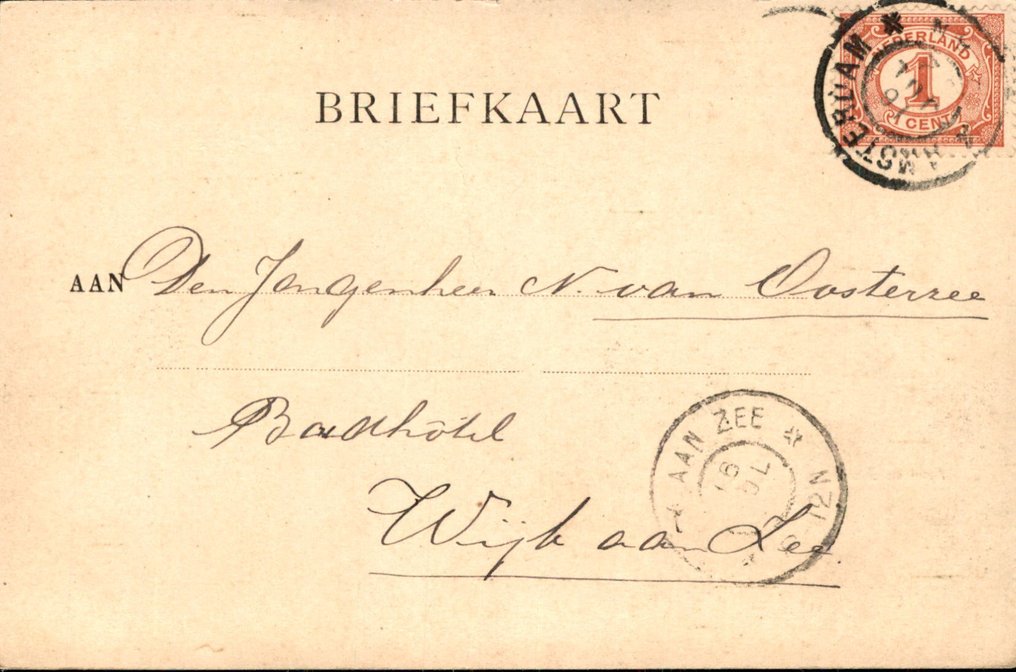 BRIEFKAART
NEDERLAND
1
CENT
AMSTERDAM
AAN Den Jongenheer N. van Oosterzee
Badhôtel
Wijk aan Zee
AAN ZEE
16 JUL